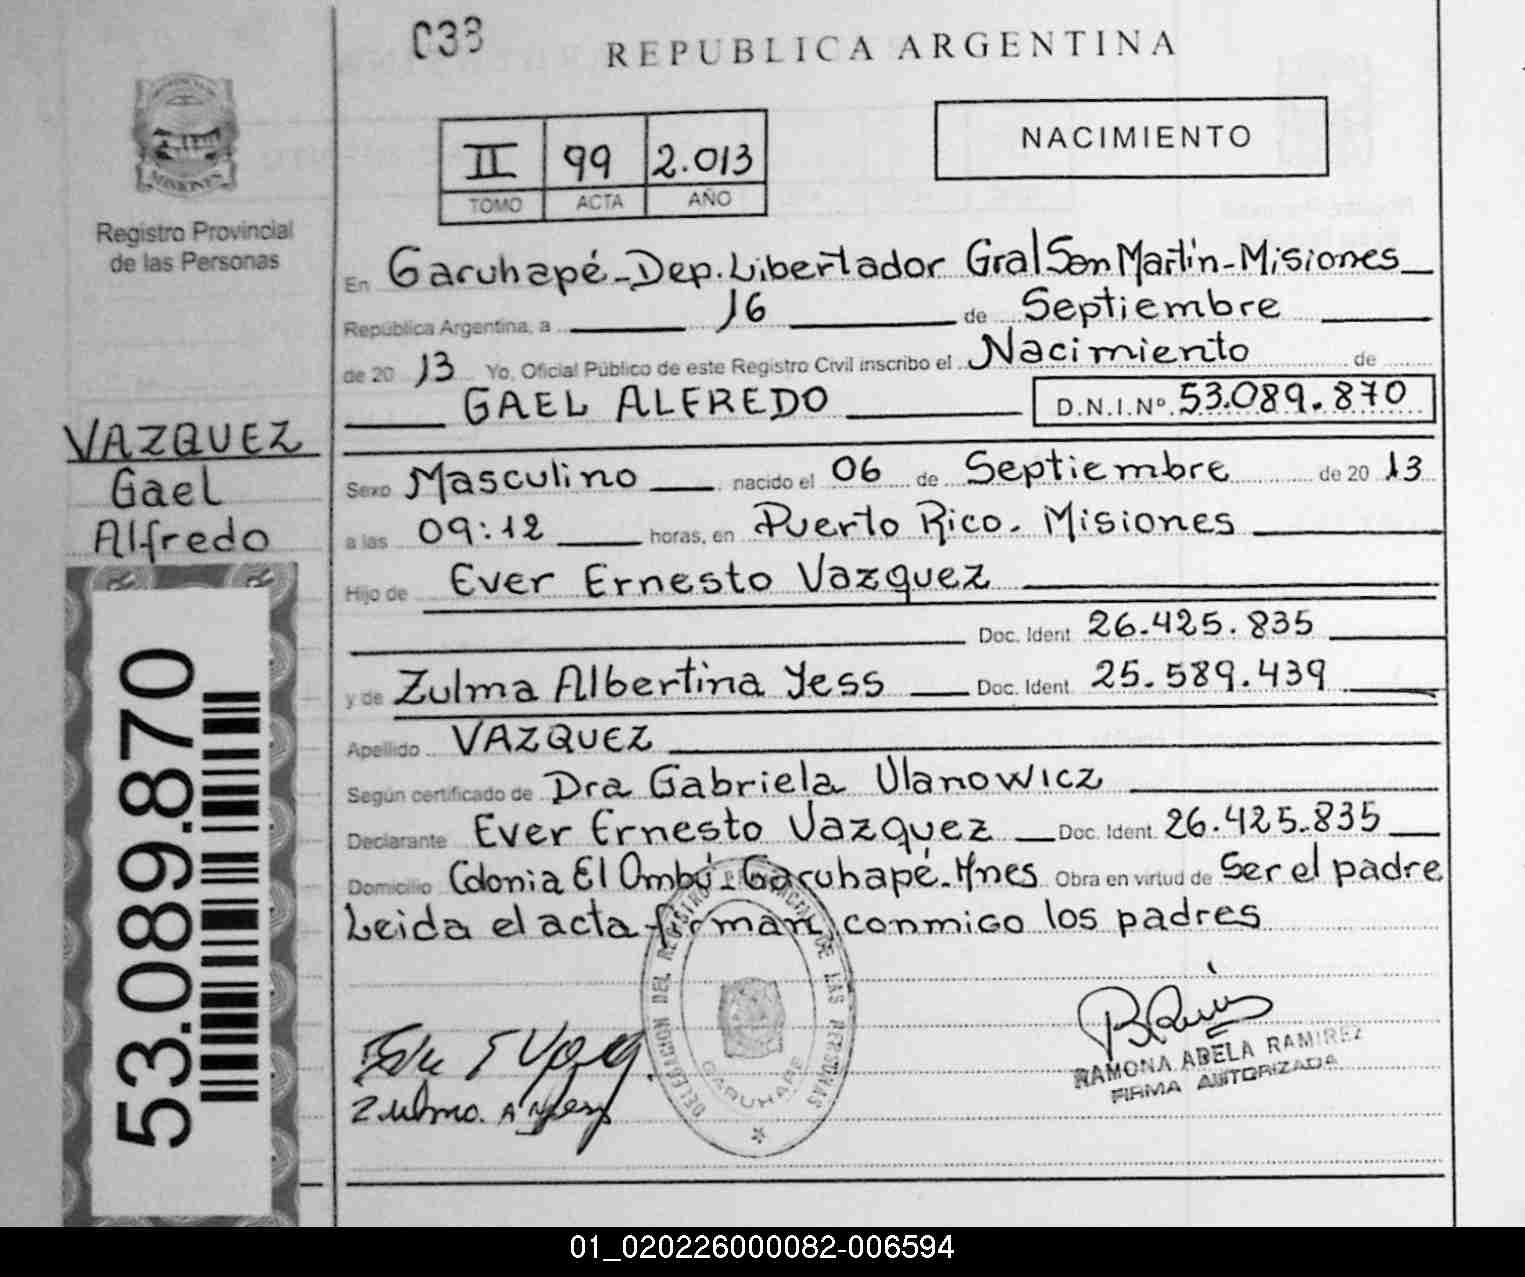 038
REPUBLICA ARGENTINA
NACIMIENTO
II 99 2.013
TOMO ACTA AÑO
MISIONES
Registro Provincial
de las Personas
En Garuhapé-Dep. Libertador Gral San Martín-Misiones
República Argentina, a 16 de Septiembre
de 20 13 Yo, Oficial Público de este Registro Civil inscribo el Nacimiento de
GAEL ALFREDO D.N.I.Nº 53.089.870
VAZQUEZ
Gael
Alfredo
Sexo Masculino nacido el 06 de Septiembre de 20 13
a las 09:12 horas, en Puerto Rico. Misiones
Hijo de Ever Ernesto Vazquez
Doc. Ident 26.425.835
y de Zulma Albertina Yess Doc. Ident 25.589.439
Apellido VAZQUEZ
Según certificado de Dra Gabriela Ulanowicz
Declarante Ever Ernesto Vazquez Doc. Ident. 26.425.835
Domicilio Colonia El Ombú-Garuhapé-Mnes Obra en virtud de Ser el padre
Leida el acta firman conmigo los padres
53.089.870
DELEGACION DEL REGISTRO PROVINCIAL DE LAS PERSONAS
GARUHAPE
RAMONA ADELA RAMIREZ
FIRMA AUTORIZADA
01_020226000082-006594